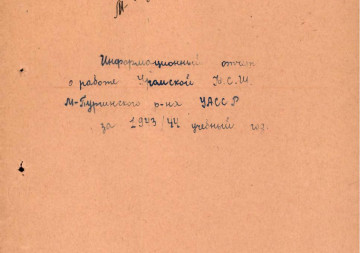 М
Информационный отчет
о работе Урамской Н.С.Ш
М-Пургинского р-на УАССР
за 1943/44 учебный год.